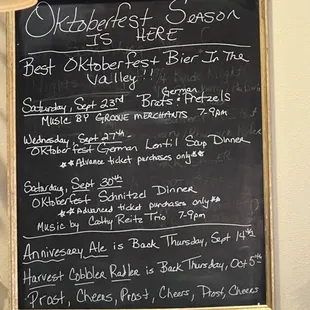 Oktoberfest Season
IS HERE
Best Oktoberfest Bier In The
Valley!!!
Saturday, Sept 23rd German Brats & Pretzels
Music By Groove Merchants 7-9pm
Wednesday, Sept 27th -
Oktoberfest German Lentil Soup Dinner
** Advance ticket purchases only **
Saturday, Sept 30th
Oktoberfest Schnitzel Dinner
** Advanced ticket purchases only **
Music by Cathy Reitz Trio 7-9pm
Annivesary Ale is Back Thursday, Sept 14th
Harvest Cobbler Radler is Back Thursday, Oct 5th
Prost, Cheers, Prost, Cheers, Prost, Cheers